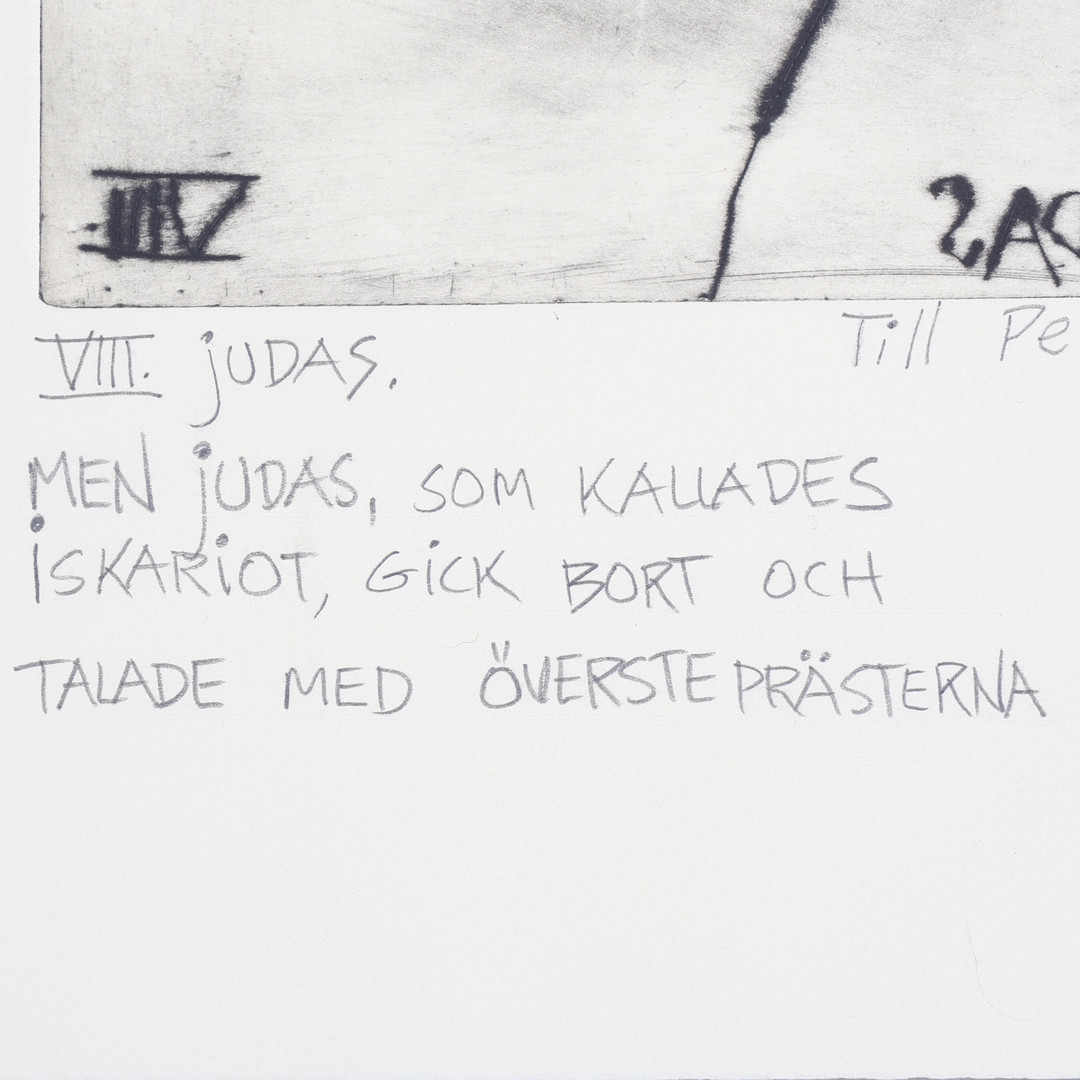 IIIV
VIII. jUDAS.
Till Pe
MEN jUDAS, SOM KALLADES
iSKARiOT, GiCK BORT OCH
TALADE MED ÖVERSTEPRÄSTERNA